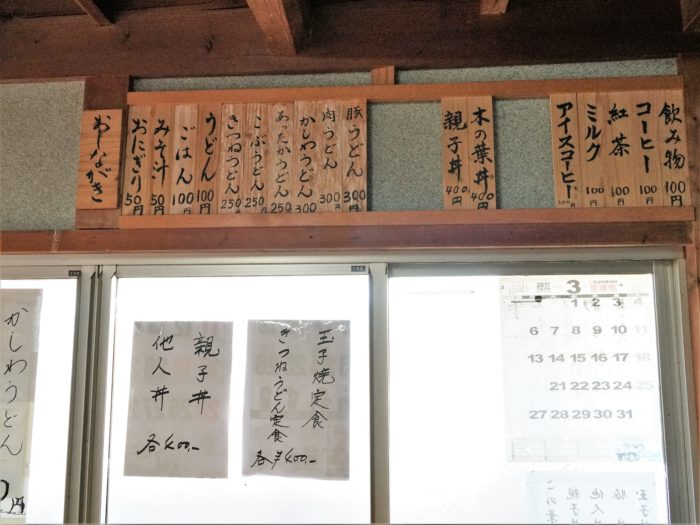 飲み物 100円
コーヒー 100円
紅茶 100円
ミルク 100円
アイスコーヒー 100円
木の葉丼 400円
親子丼 400円
豚うどん 300円
肉うどん 300円
かしわうどん 300
あったかうどん 250
こぶうどん 250円
きつねうどん 250円
うどん 100円
ごはん 100円
みそ汁 50円
おにぎり 50円
おしながき
かしわうどん
円
親子丼
他人丼
各400.-
玉子焼定食
きつねうどん定食
各¥400.-
2017 3
1 2 3 4
6 7 8 9 10 11
13 14 15 16 17 18
21 22 23 24 25
27 28 29 30 31
玉子
豚
他人
親子
この葉